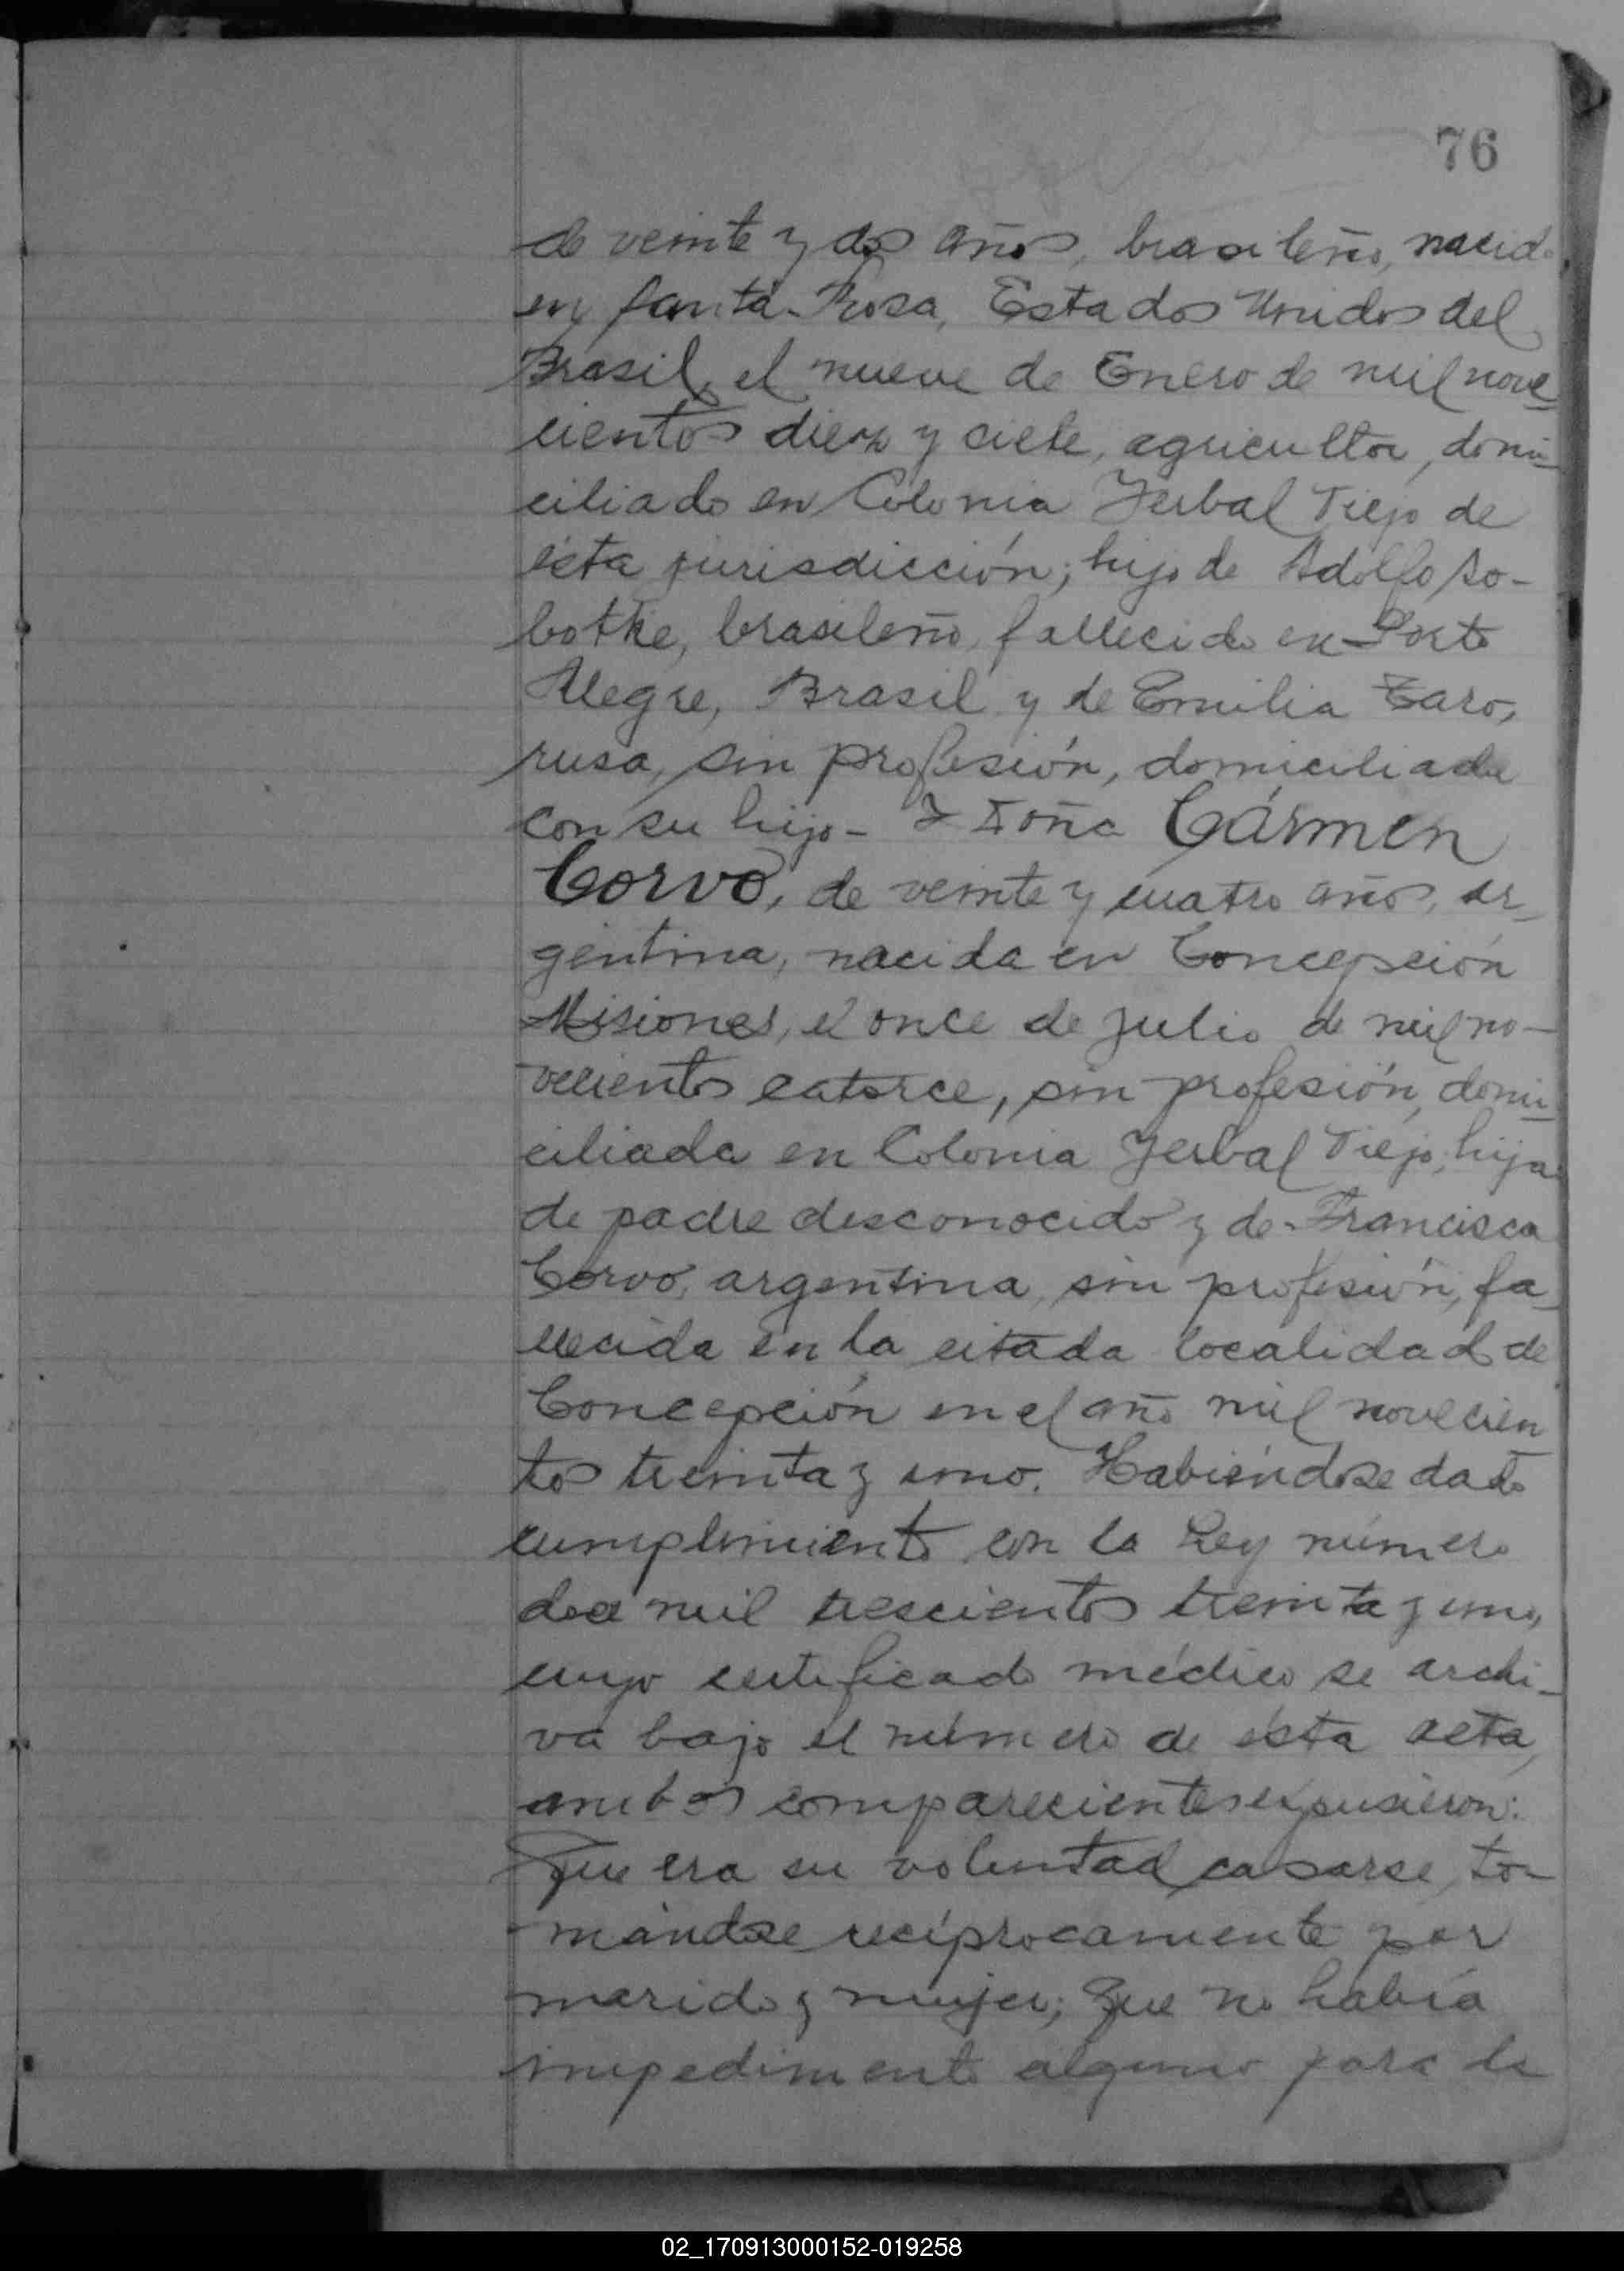 76
de veinte y dos años, brasileño, nacido
en Santa Rosa, Estados Unidos del
Brasil, el nueve de Enero de mil nove-
cientos diez y siete, agricultor, domi-
ciliado en Colonia Yerbal Viejo de
ésta jurisdicción; hijo de Adolfo So-
bothe, brasileño, fallecido en Porto
Alegre, Brasil y de Emilia Zaro,
rusa, sin profesión, domiciliada
con su hijo - Y Doña Cármen
Corvo, de veinte y cuatro años, ar-
gentina, nacida en Concepción
Misiones, el once de Julio de mil no-
vecientos catorce, sin profesión, domi-
ciliada en Colonia Yerbal Viejo; hija
de padre desconocido y de Francisca
Corvo, argentina, sin profesión, fa-
llecida en la citada localidad de
Concepción en el año mil novecien
tos treinta y uno. Habiéndose dado
cumplimiento con la Ley número
dos mil trescientos treinta y uno,
cuyo certificado médico se archi-
va bajo el número de ésta acta,
ambos comparecientes expusieron:
Que era su voluntad casarse, to-
mándose recíprocamente por
marido y mujer; Que no había
impedimento alguno para la
02_170913000152-019258